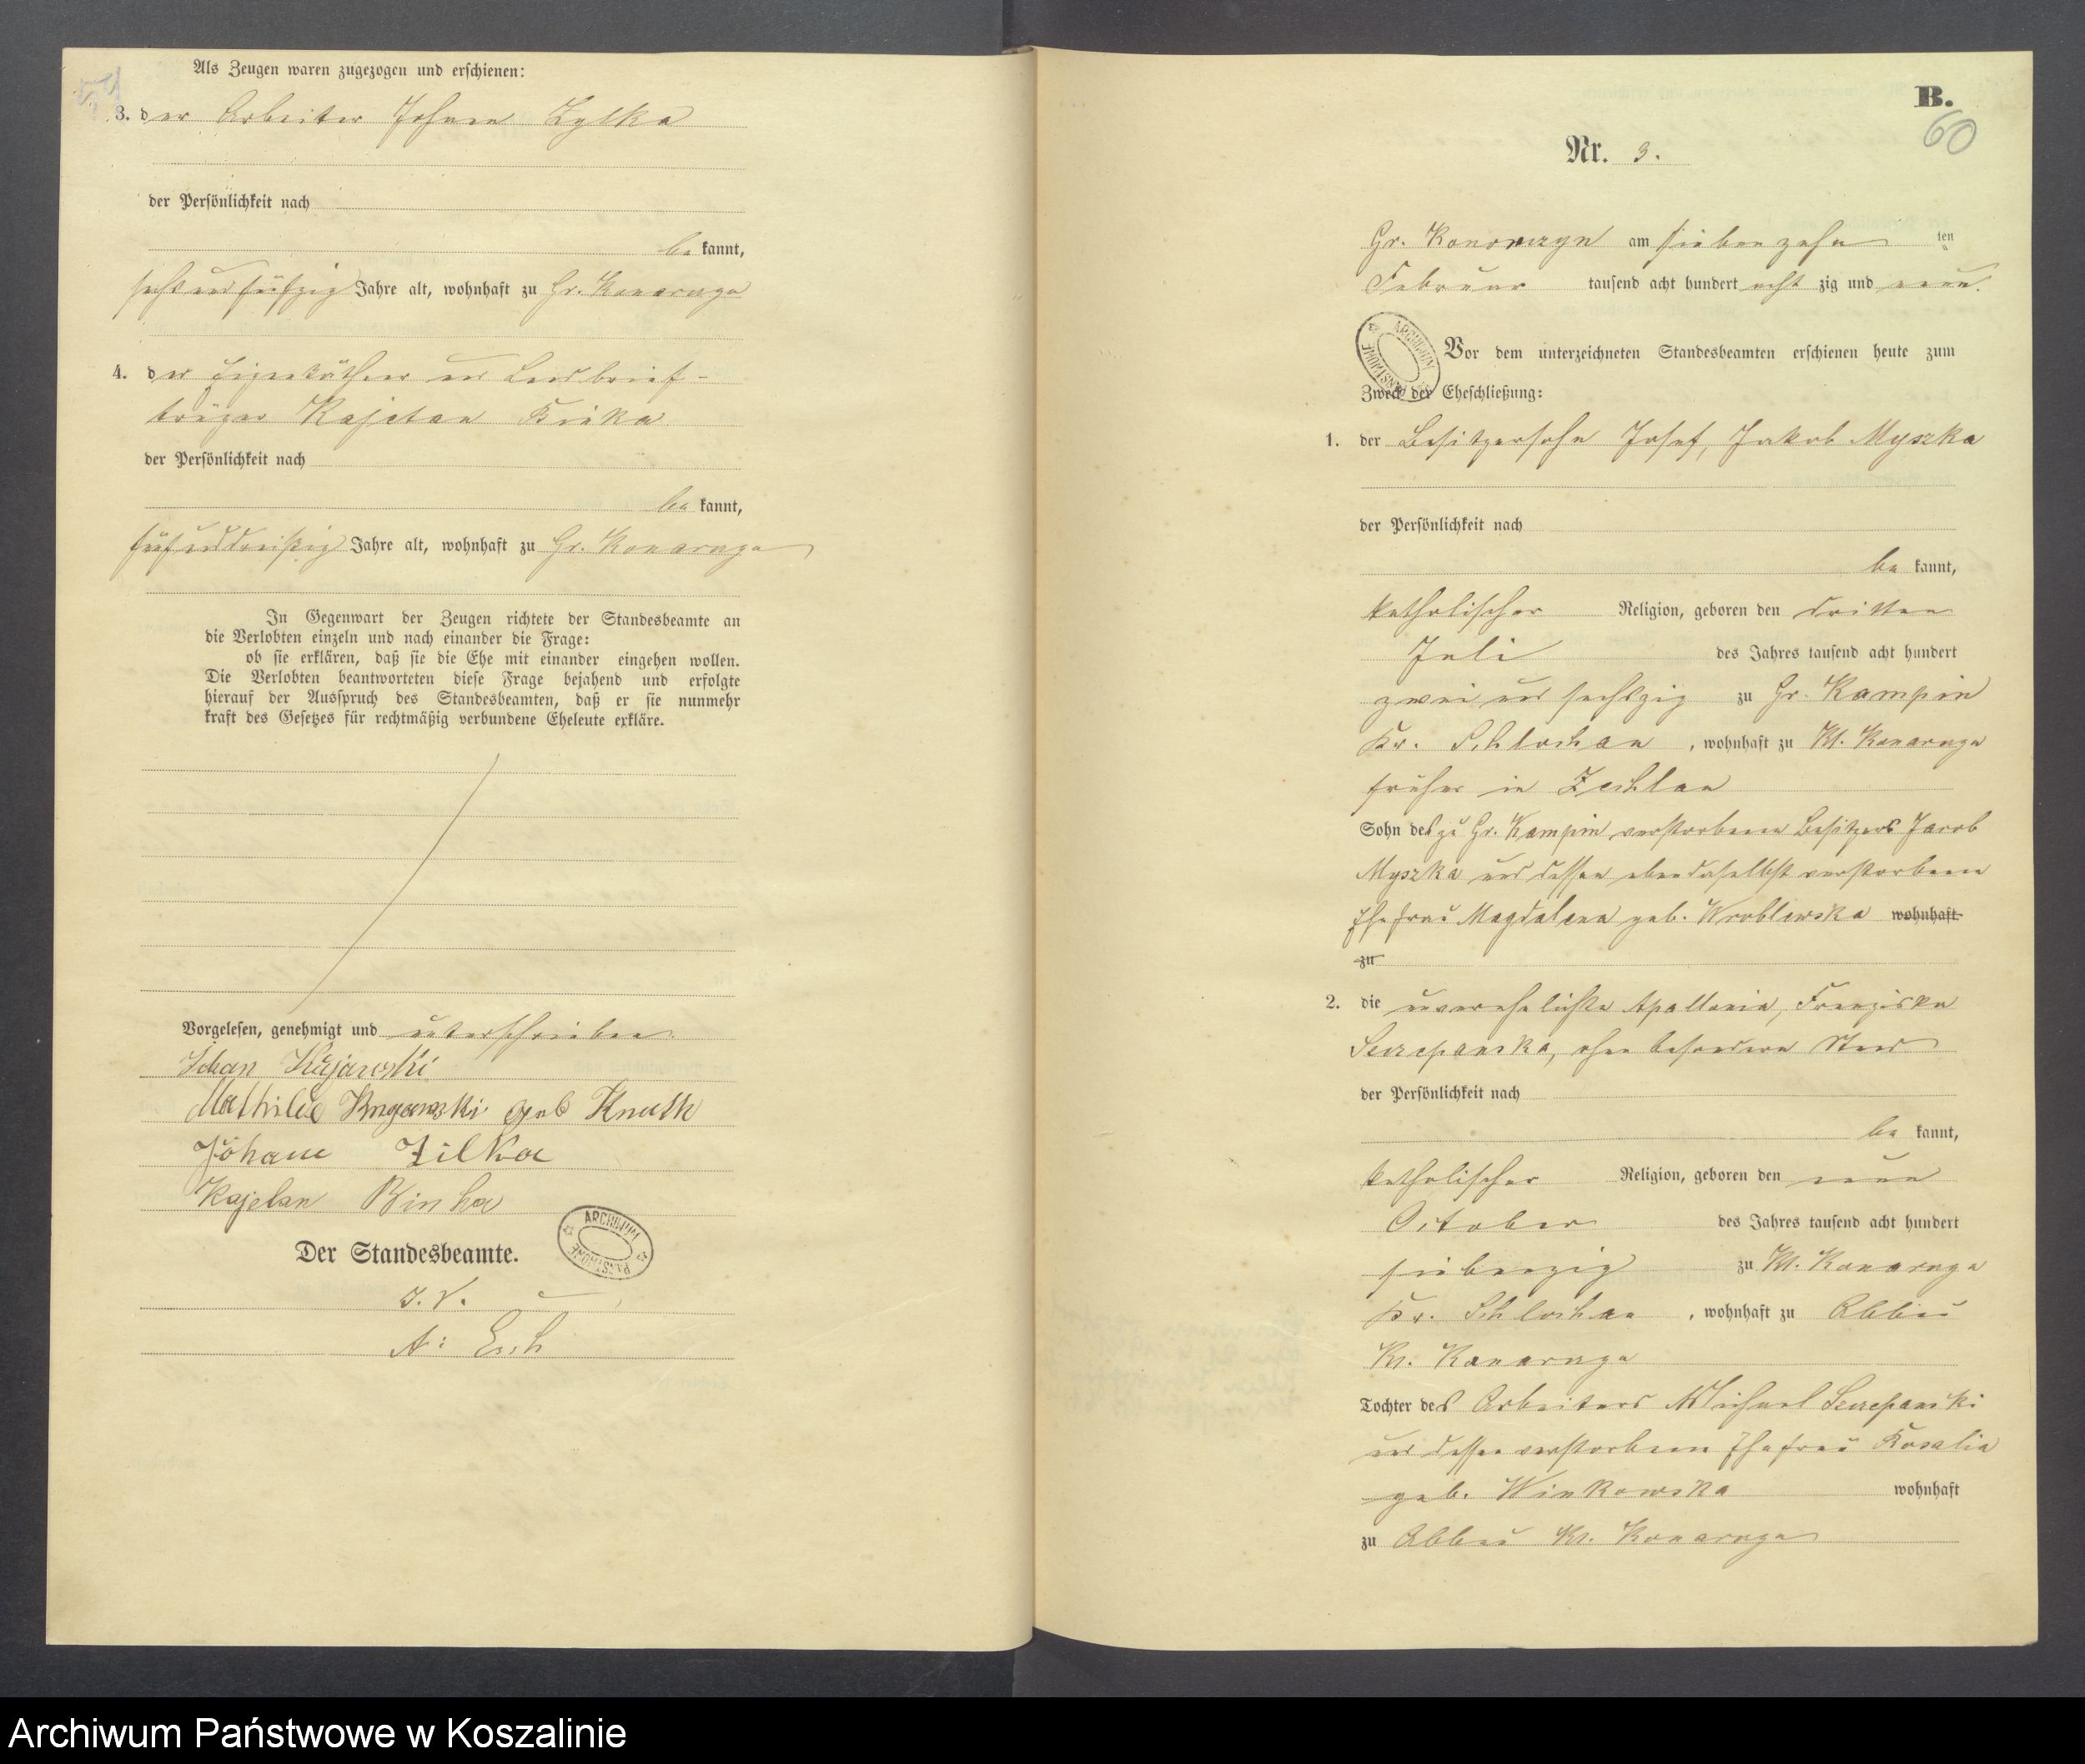 Als Zeugen waren zugezogen und erschienen:
59
3. der Arbeiter Johann Zylka
der Persönlichkeit nach
be kannt,
sechsundfünfzig Jahre alt, wohnhaft zu Gr. Konarczyn
4. der Eigenkäthner und Landbrief-
träger Kajetan Binka
der Persönlichkeit nach
be kannt,
fünfunddreißig Jahre alt, wohnhaft zu Gr. Konarczyn
In Gegenwart der Zeugen richtete der Standesbeamte an
die Verlobten einzeln und nach einander die Frage:
ob sie erklären, daß sie die Ehe mit einander eingehen wollen.
Die Verlobten beantworteten diese Frage bejahend und erfolgte
hierauf der Ausspruch des Standesbeamten, daß er sie nunmehr
kraft des Gesetzes für rechtmäßig verbundene Eheleute erkläre.
Vorgelesen, genehmigt und unterschrieben.
Johan Kujawski
Mathilde Kujawski geb Knuth
Johann Zilka
Kajetan Binka
ARCHIWUM PAŃSTWOWE
Der Standesbeamte.
I. V.
Esch
B.
60
Nr. 3.
Gr. Konarczyn am siebenzehn ten
Februar tausend acht hundert acht zig und neun.
ARCHIWUM PAŃSTWOWE
Vor dem unterzeichneten Standesbeamten erschienen heute zum
Zweck der Eheschließung:
1. der Besitzersohn Josef, Jakob Myszka
der Persönlichkeit nach
be kannt,
katholischer Religion, geboren den dritten
Juli des Jahres tausend acht hundert
zwei und sechszig zu Gr. Kampin
Kr. Schlochau, wohnhaft zu Kl. Konarczyn
früher in Zechlau
Sohn des zu Gr. Kampin verstorbenen Besitzers Jacob
Myszka und dessen ebendaselbst verstorbenen
Ehefrau Magdalena geb. Wroblewska wohnhaft
zu
2. die unverehelichte Apollonia, Franziska
Sczepanska, ohne besonderen Stand
der Persönlichkeit nach
be kannt,
katholischer Religion, geboren den neun
October des Jahres tausend acht hundert
siebenzig zu Kl. Konarczyn
Kr. Schlochau, wohnhaft zu Abbau
Kl. Konarczyn
Tochter des Arbeiters Michael Sczepanski
und dessen verstorbenen Ehefrau Rosalia
geb. Winkowska wohnhaft
zu Abbau Kl. Konarczyn
Archiwum Państwowe w Koszalinie